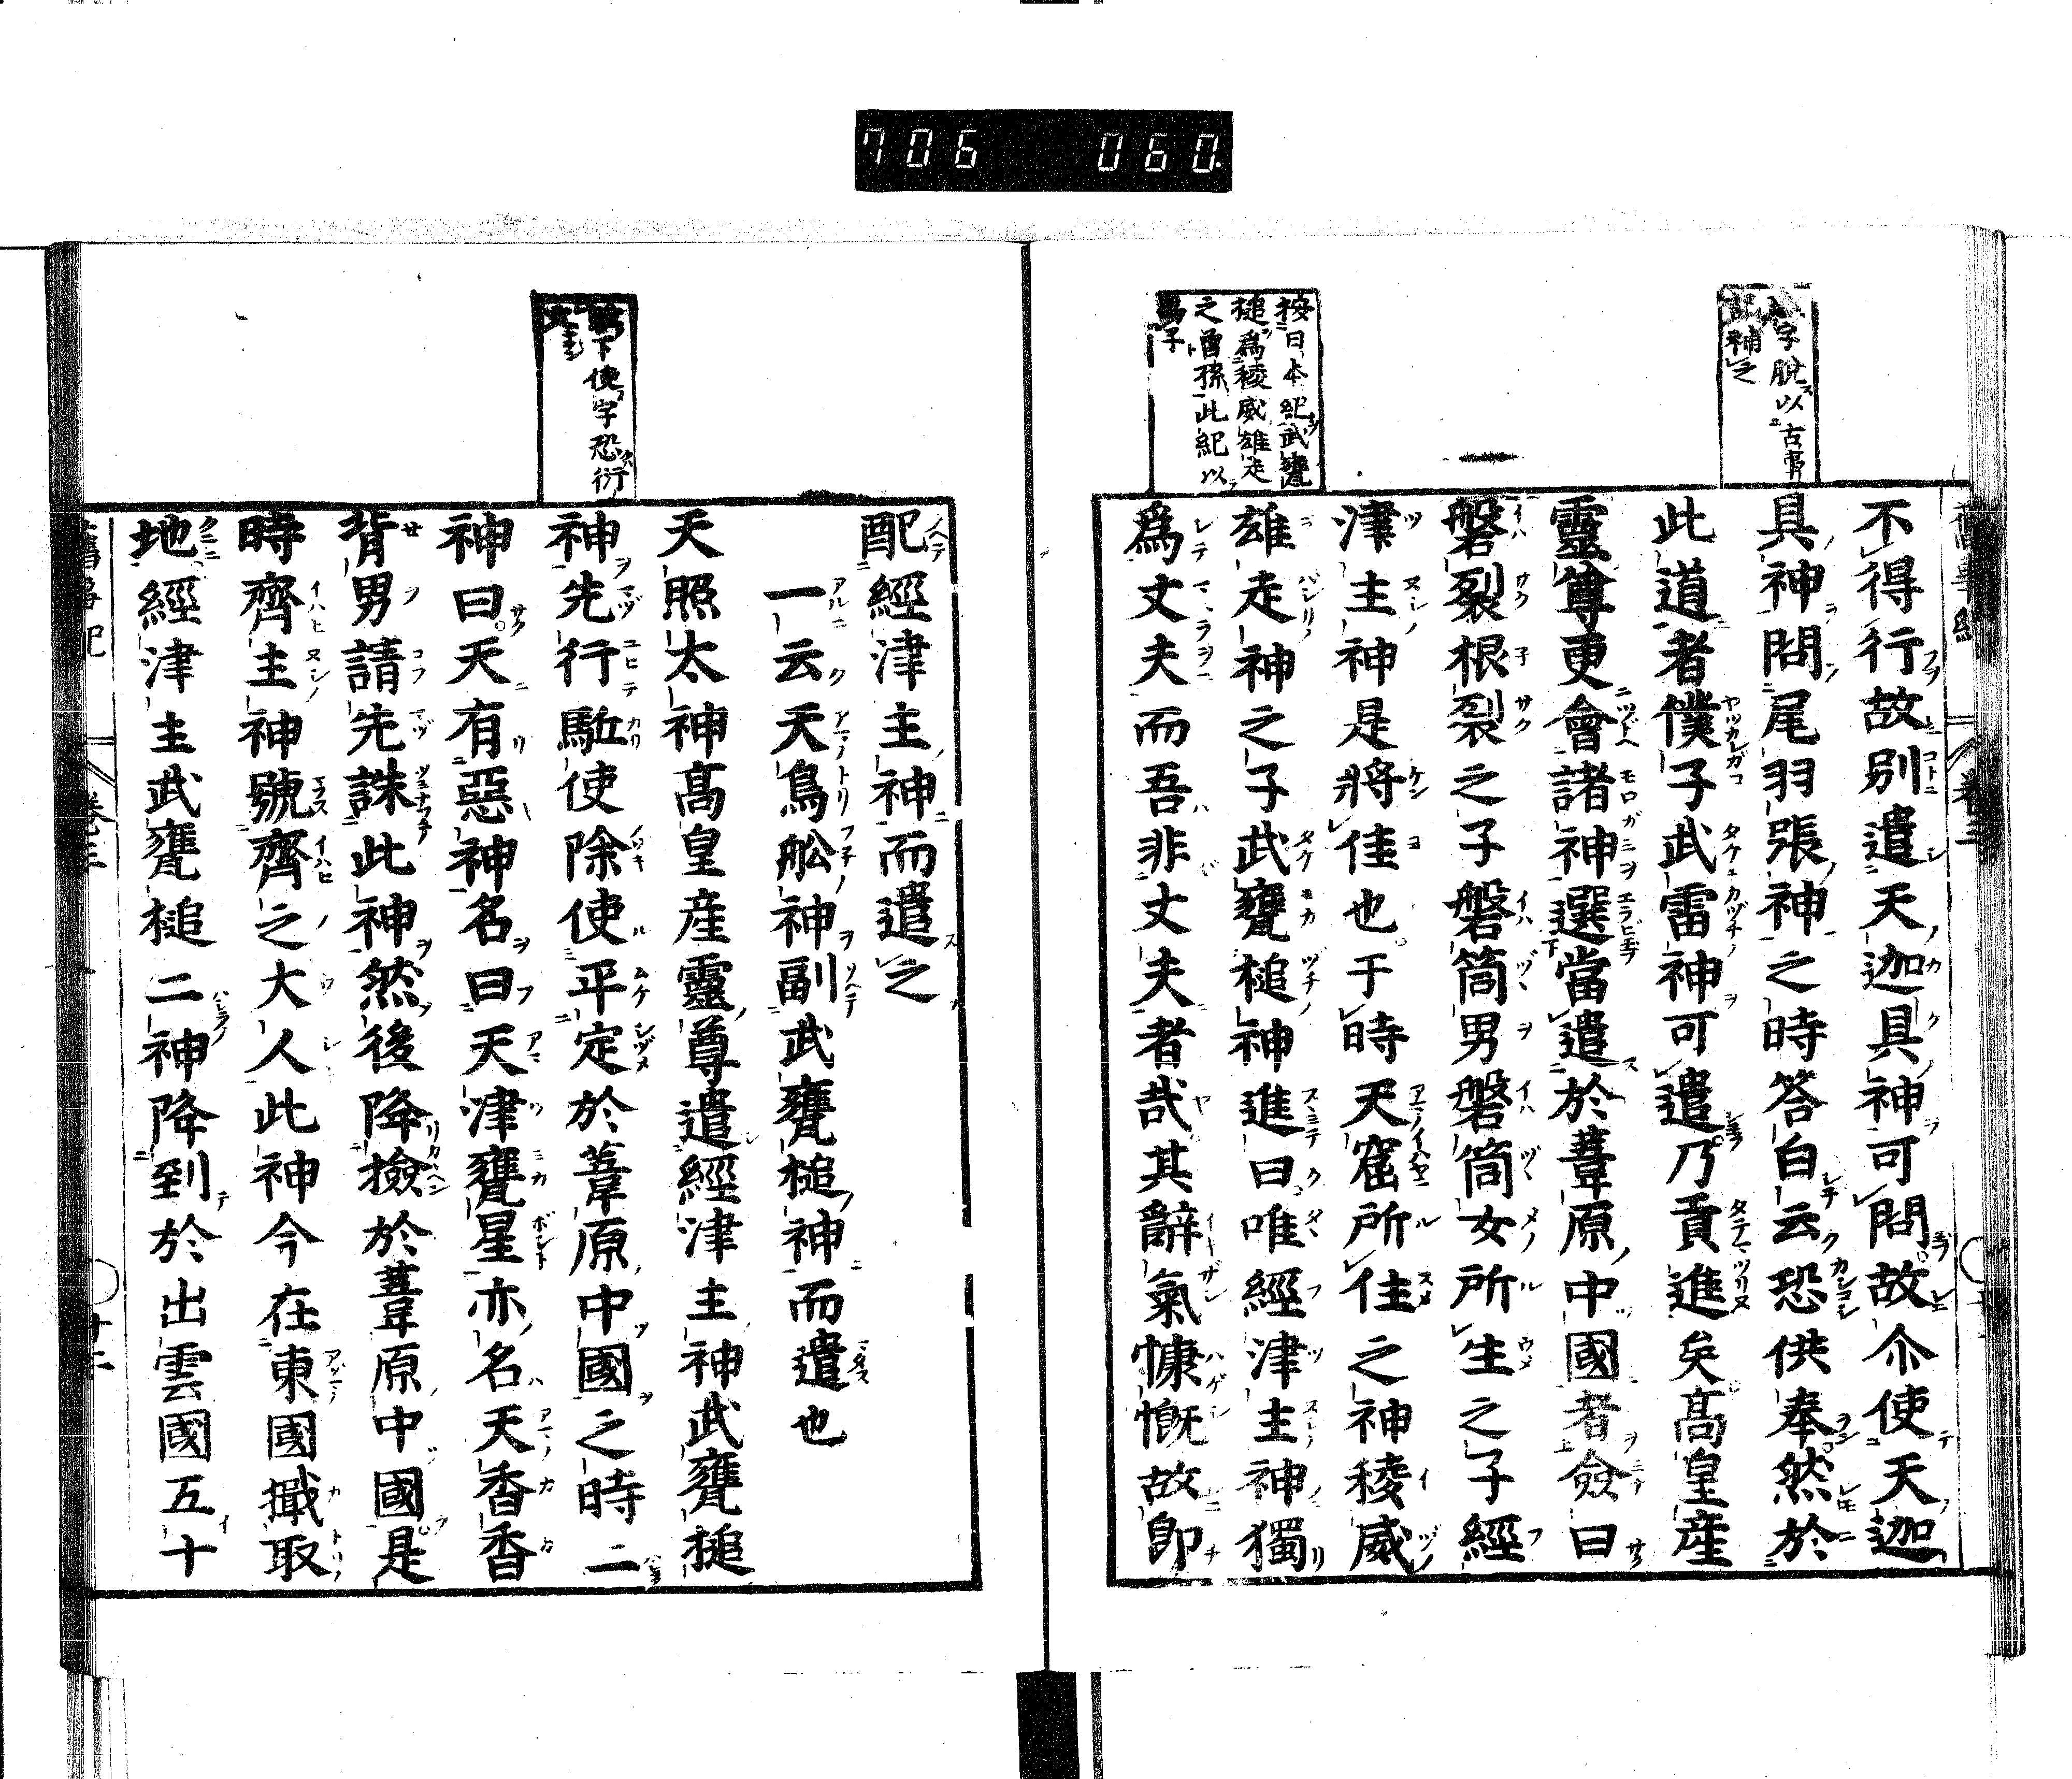 706 060
字脫以古事
記補之
不得行故別遣天迦具神可問故尒使天迦
具神問尾羽張神之時答白云恐供奉然於
此道者僕子武雷神可遣乃貢進矣高皇産
靈尊更會諸神選當遣於葦原中國者僉曰
磐裂根裂之子磐筒男磐筒女所生之子經
津主神是將佳也于時天窟所住之神稜威
雄走神之子武甕槌神進曰唯經津主神獨
爲丈夫而吾非丈夫者哉其辭氣慷慨故即
按日本紀武甕
槌爲稜威雄走
之曾孫此紀以
爲子
配經津主神而遣之
一云天鳥舩神副武甕槌神而遣也
天照太神高皇産靈尊遣經津主神武甕槌
神先行駈使除使平定於葦原中國之時二
神曰天有惡神名曰天津甕星亦名天香香
背男請先誅此神然後降撿於葦原中國是
時齊主神號齊之大人此神今在東國檝取
地經津主武甕槌二神降到於出雲國五十
下使字恐衍
舊事紀 卷三